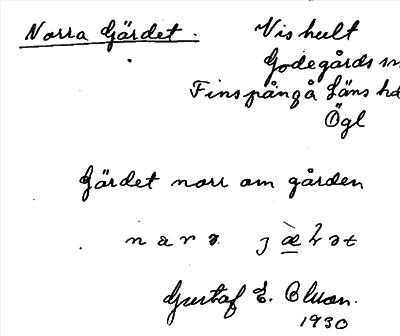 Norra Gärdet.
Vishult
Godegårds
Finspångå Läns hd
Ögl
Gärdet norr om gården
Gustaf E.
1930